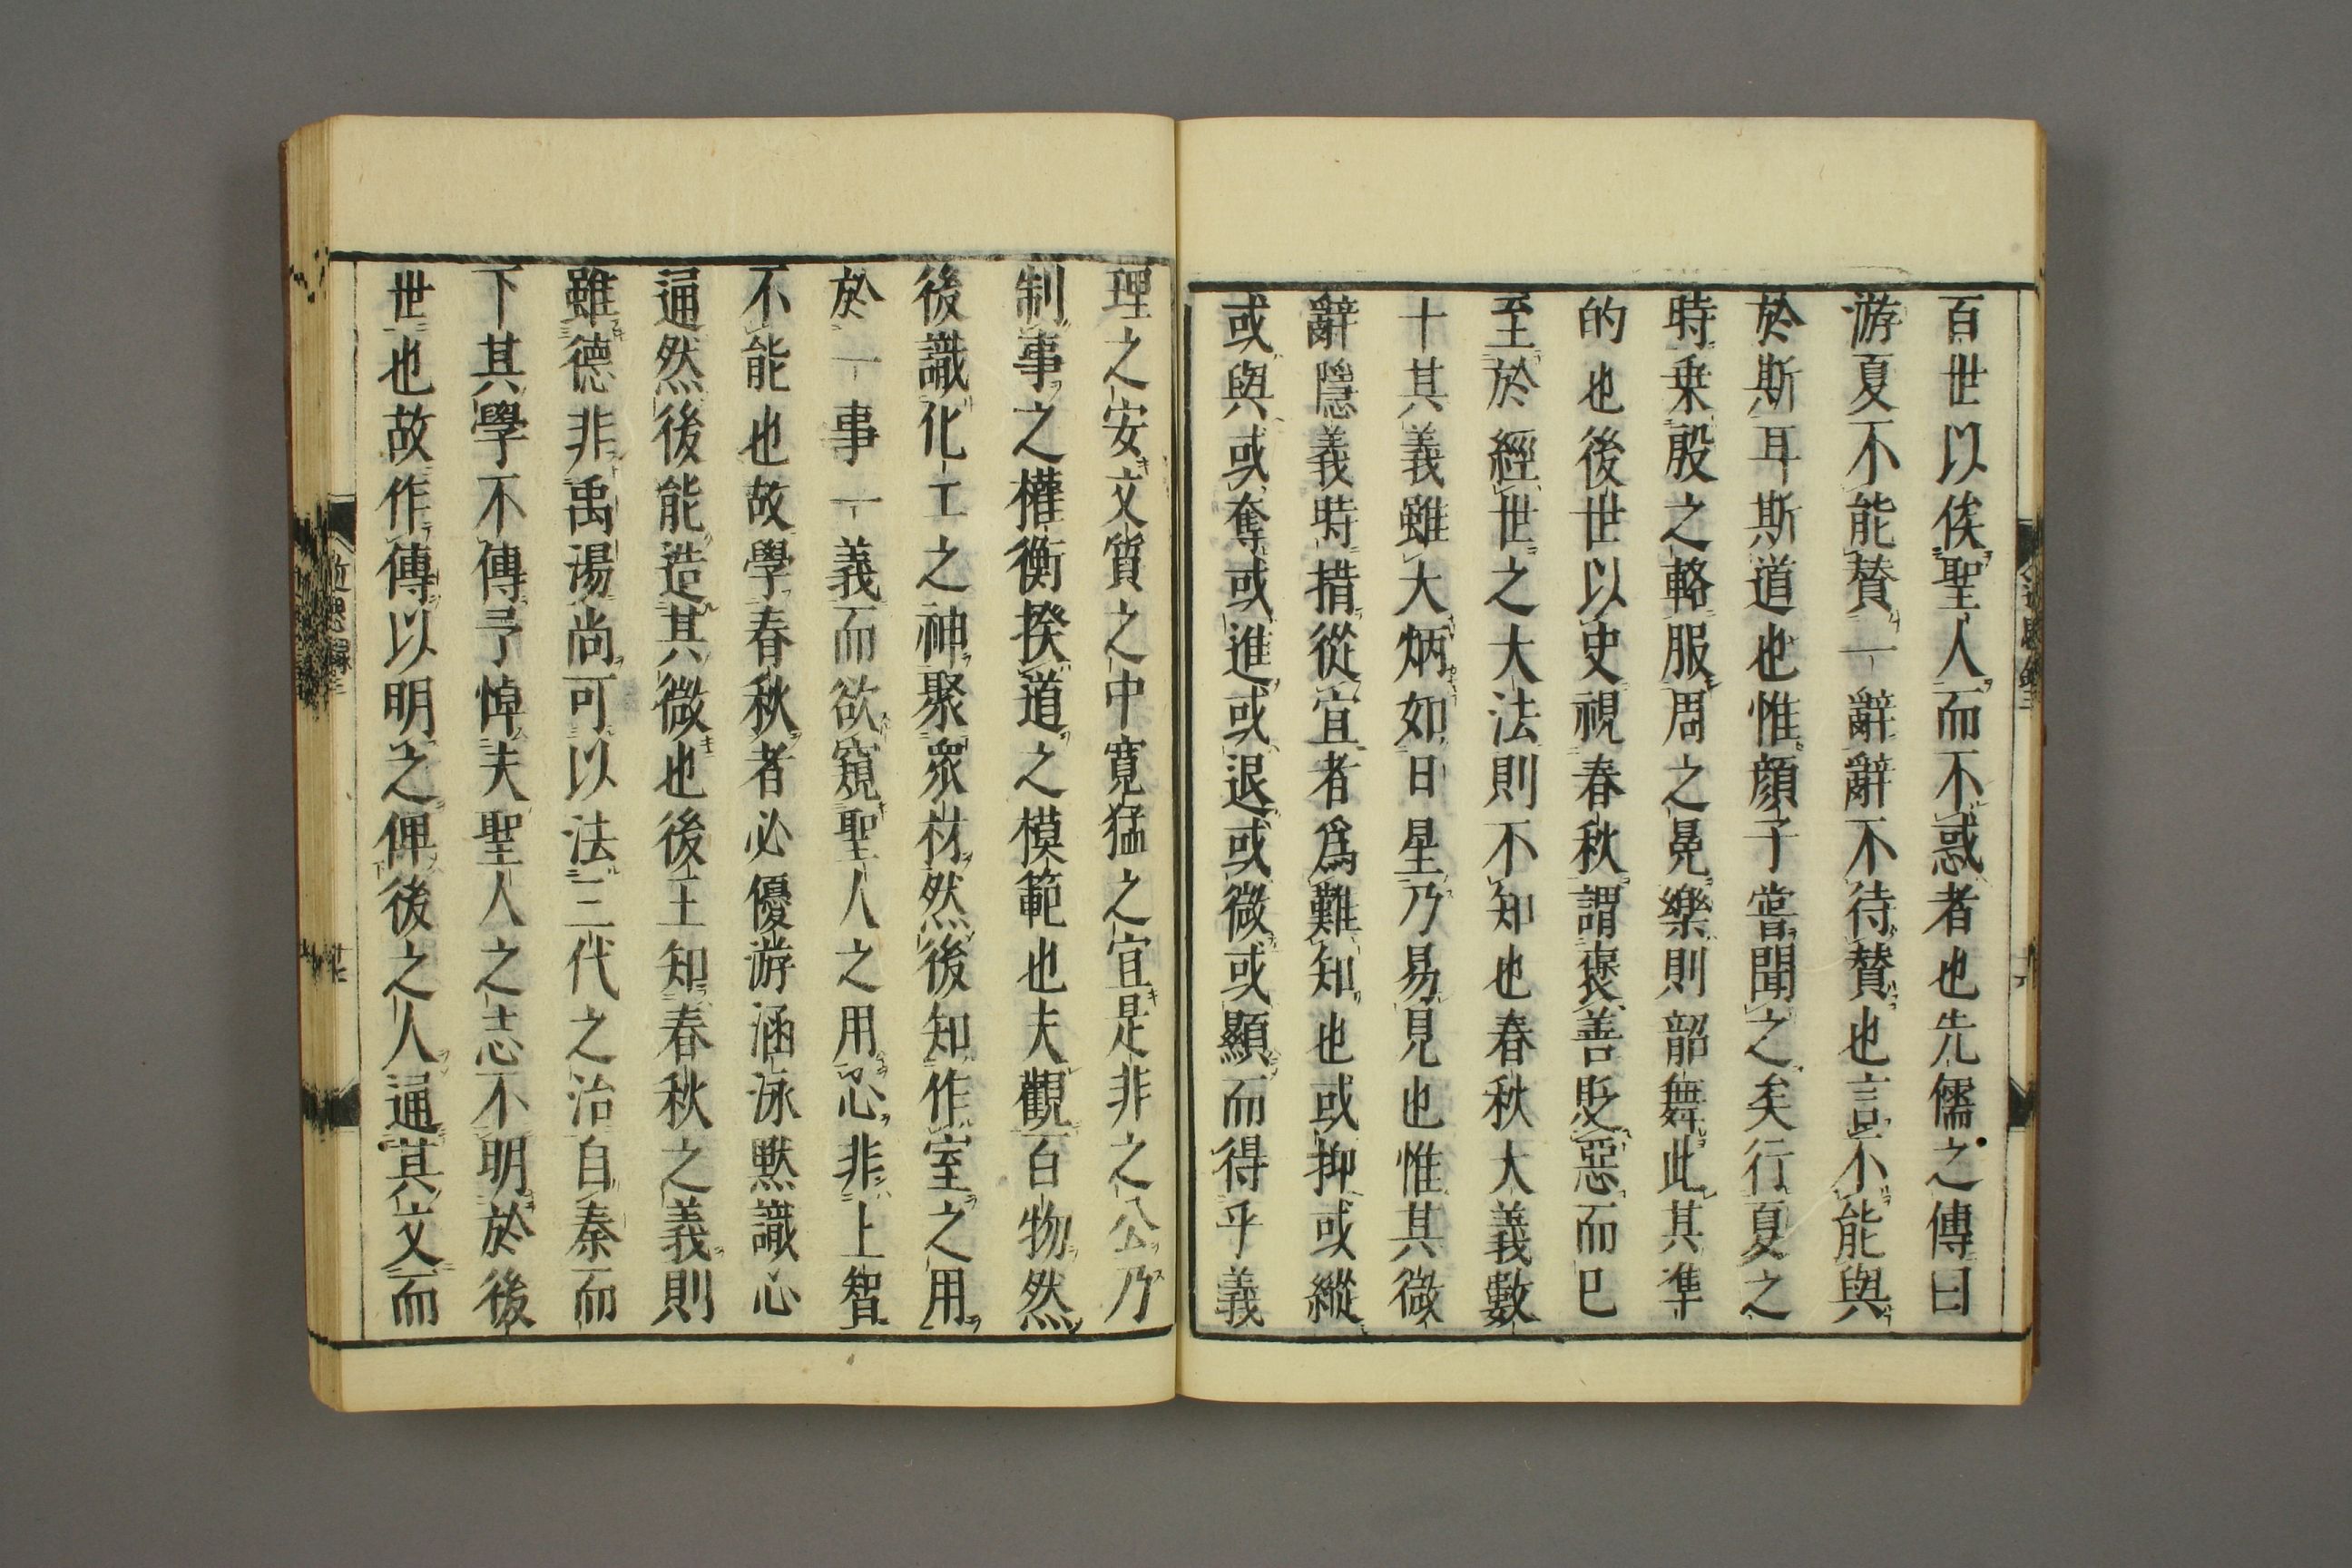 百世以俟聖人而不惑者也先儒之傳曰
游夏不能賛一辭辭不待賛也言不能與
於斯耳斯道也惟顔子嘗聞之矣行夏之
時乗殷之輅服周之冕樂則韶舞此其準
的也後世以史視春秋謂褒善貶惡而已
至於經世之大法則不知也春秋大義數
十其義雖大炳如日星乃易見也惟其微
辭隱義時措從宜者爲難知也或抑或縱
或與或奪或進或退或微或顯而得乎義
理之安文質之中寛猛之宜是非之公乃
制事之權衡揆道之模範也夫觀百物然
後識化工之神聚衆材然後知作室之用
於一事一義而欲窺聖人之用心非上智
不能也故學春秋者必優游涵泳黙識心
通然後能造其微也後王知春秋之義則
雖德非禹湯尚可以法三代之治自秦而
下其學不傳予悼夫聖人之志不明於後
世也故作傳以明之俾後之人通其文而
近思録三